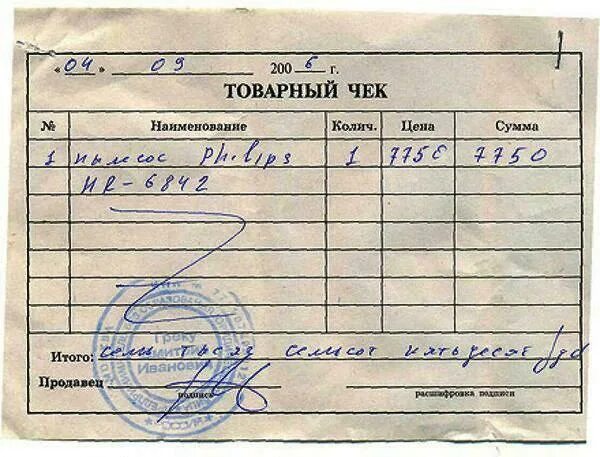 «04» 09 2006 г.
ТОВАРНЫЙ ЧЕК
№ Наименование Колич. Цена Сумма
1 пылесос Philips 1 7750 7750
HR-6842
Итого: семь тысяч семьсот пятьдесят руб
Продавец
подпись расшифровка подписи
Греку
Дмитрий
Иванович